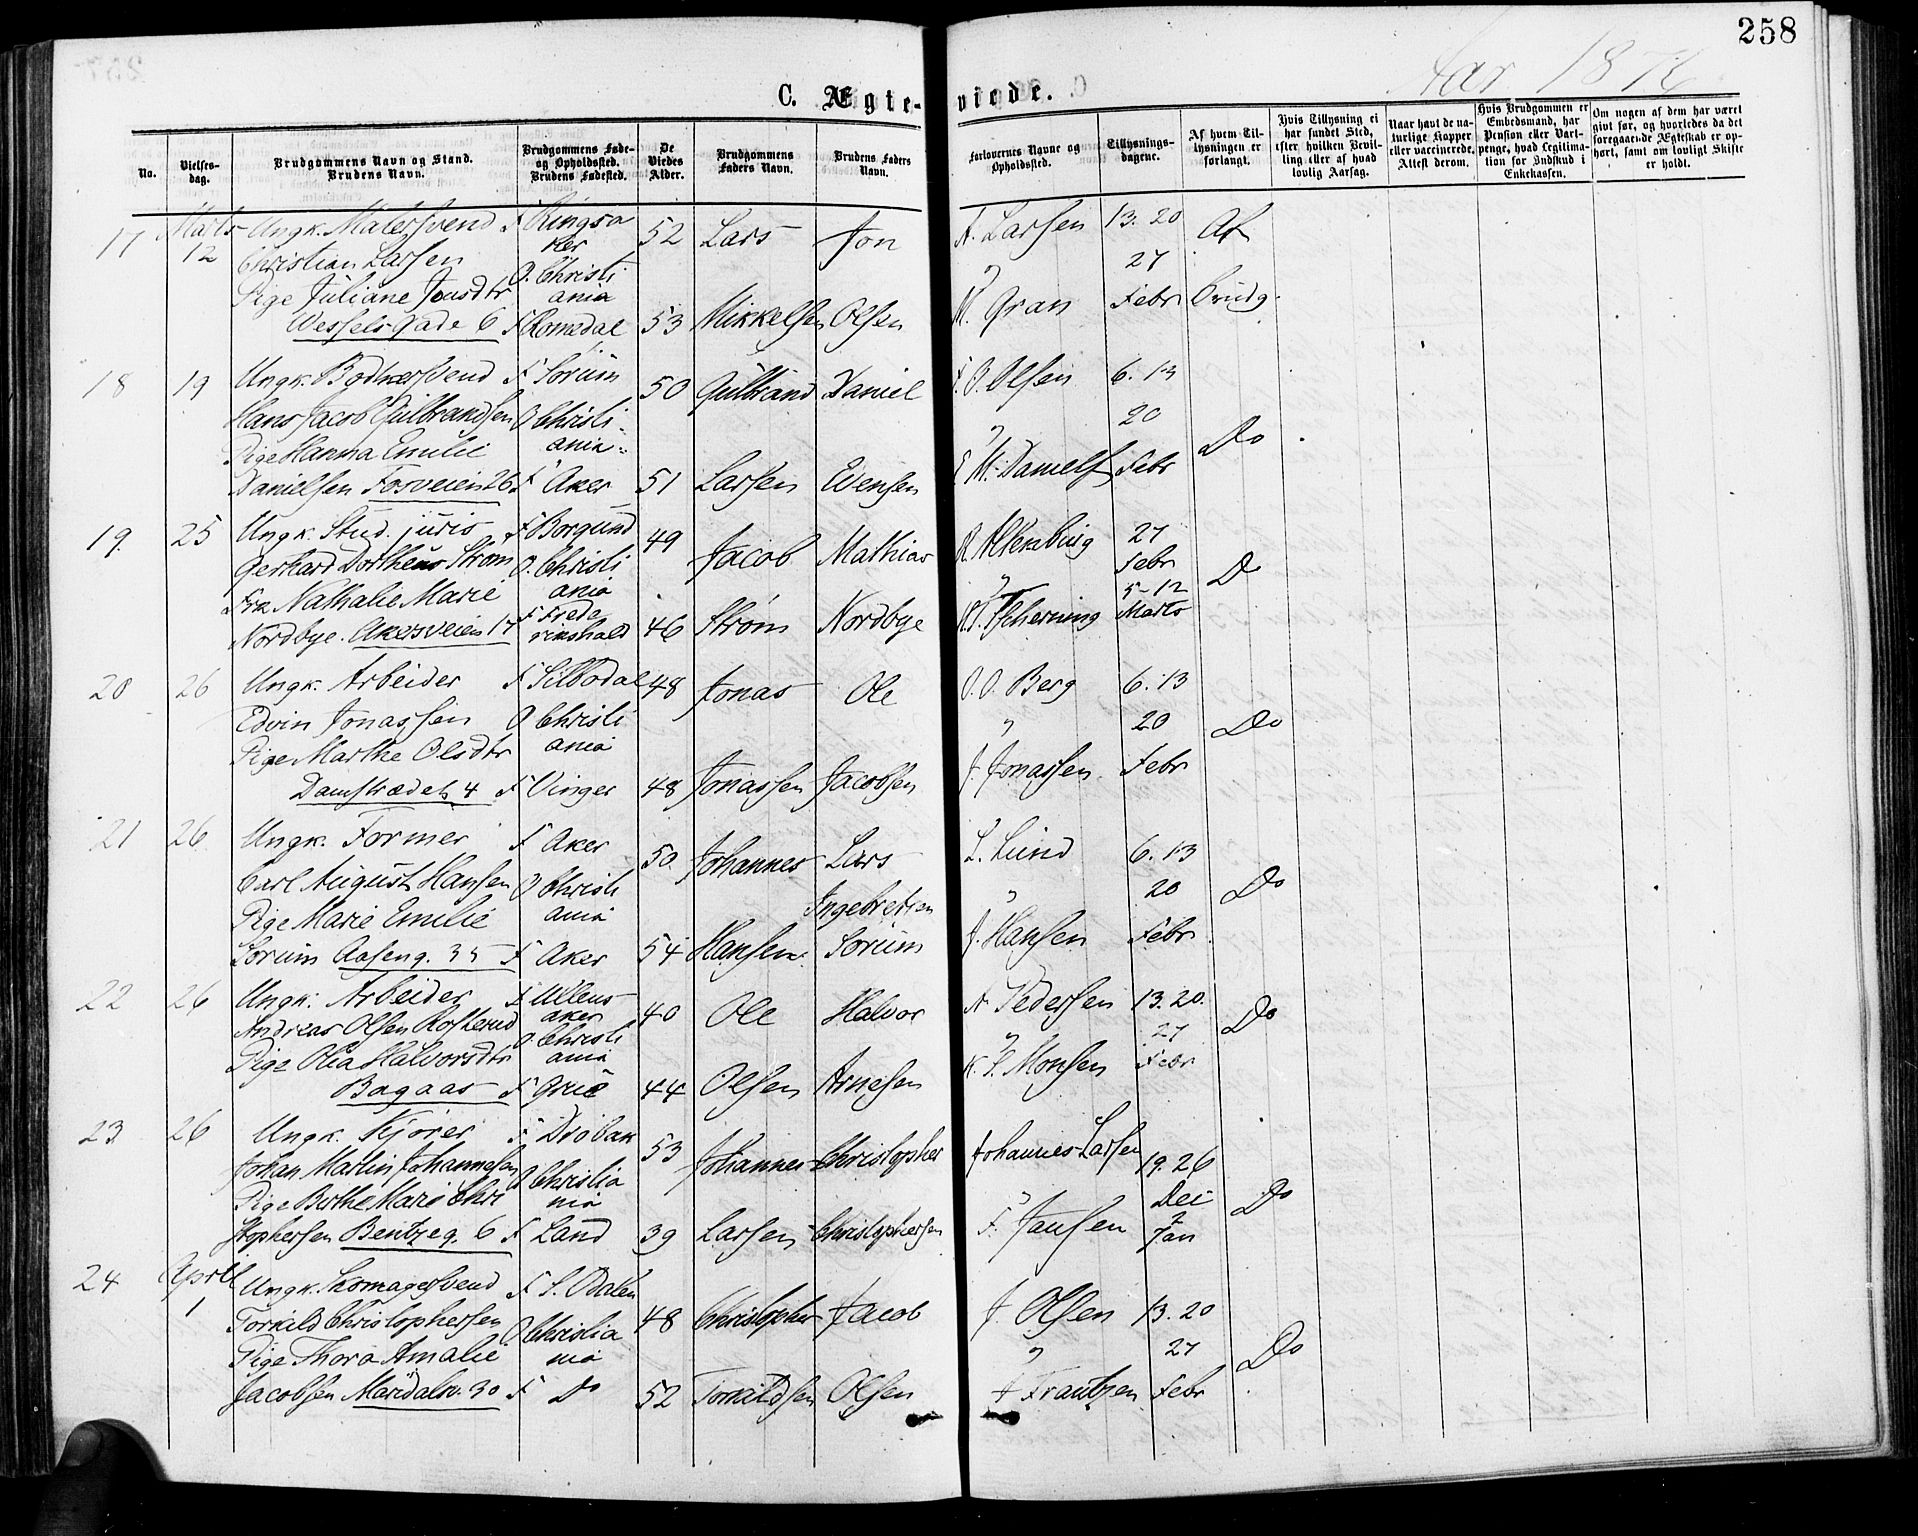 258
Aar 1876
C. Ægte-viede.
No.
Vielses-dag.
Brudgommens Navn og Stand. Brudens Navn.
Brudgommens Føde- og Opholdssted. Brudens Fødested.
De Viedes Alder.
Brudgommens Faders Navn.
Brudens Faders Navn.
Forlovernes Navne og Opholdssted.
Tillysnings-dagene.
Af hvem Til-lysningen er forlangt.
Hvis Tillysning ei har fundet Sted, efter hvilken Bevil-ling eller af hvad lovlig Aarsag.
Naar havt de na-turlige Kopper eller vaccinerede. Attest derom.
Hvis Brudgommen er Embedsmand, har Pension eller Vart-penge, hvad Legitima-tion for Indskud i Enkekassen.
Om nogen af dem har været givt før, og hvorledes da det foregaaende Ægteskab er op-hørt, samt om lovligt Skifte er holdt.
17 Marts Ungk. Malersvend F Ringsa 52 Lars Jon A. Larsen 13. 20 Af
12 Christian Larsen ker 27
Pige Juliane Jonsdtr O. Christi ania "
Wesselsgade 6 F Romedal 53 Mikkelsen Olsen M. Gran Febr Brudg.
18 19 Ungk. Bødkersvend F Sørum 50 Gulbrand Daniel O. Olsen 6. 13
Hans Jacob Gulbrandsen O Christi- " 20
Pige Hanna Emilie ania Do
Danielsen Fosveien 26 F Aker 51 Larsen Evensen M. Danielsen Febr
19. 25 Ungk. Stud. juris F Borgund 49 Jacob Mathias R. Altenburg 27
Gerhard Dortheus Strøm O. Christi Febr
Frk Nathalie Marie ania " 5-12 Do
Nordbye. Akersveien 17 F Frede rikshald 46 Strøm Nordbye Tscherning Marts
20 26 Ungk. Arbeider F Silbodal 48 Jonas Ole O. O. Berg 6. 13
Edvin Jonassen O Christi " 20 Do
Pige Marthe Olsdtr ania
Damstrædet 4 F Vinger 48 Jonassen Jacobsen J. Jonassen Febr
21 26 Ungk. Former F Aker 50 Johannes Lars L. Lund 6. 13
Carl August Hansen O Christi " 20 Do
Pige Marie Emilie ania Ingebretsen
Sorum Aaseng. 35 F Aker 54 Hansen Sorum J. Hansen Febr
22 26 Ungk. Arbeider F Ullens- 40 Ole Halvor A Pedersen 13. 20. Do
Andreas Olsen Rosterud aker 27
Pige Olia Halvorsdtr O Christi ania "
Bagaas F Grue 44 Olsen Arnesen K. S. Monsen Febr
23 26 Ungk. Kjører F Drøbak 53 Johannes Christopher Johannes Larsen
Johan Martin Johannesen O Christia 19. 26
Pige Berthe Marie Chri nia " Dec Do
stophersen Bentzeg. 6 F Land 39 Larsen Christophersen F. Jansen 2 Jan
24 April Ungk. Skomagersvend F S. Odalen
1 Torkild Christophersen O Christia 48 Christopher Jacob J. Olsen 13. 20
Pige Thora Amalie nia " 27 Do
Jacobsen Maridalsv. 30 F Do 52 Torkildsen Olsen Frantzen Febr